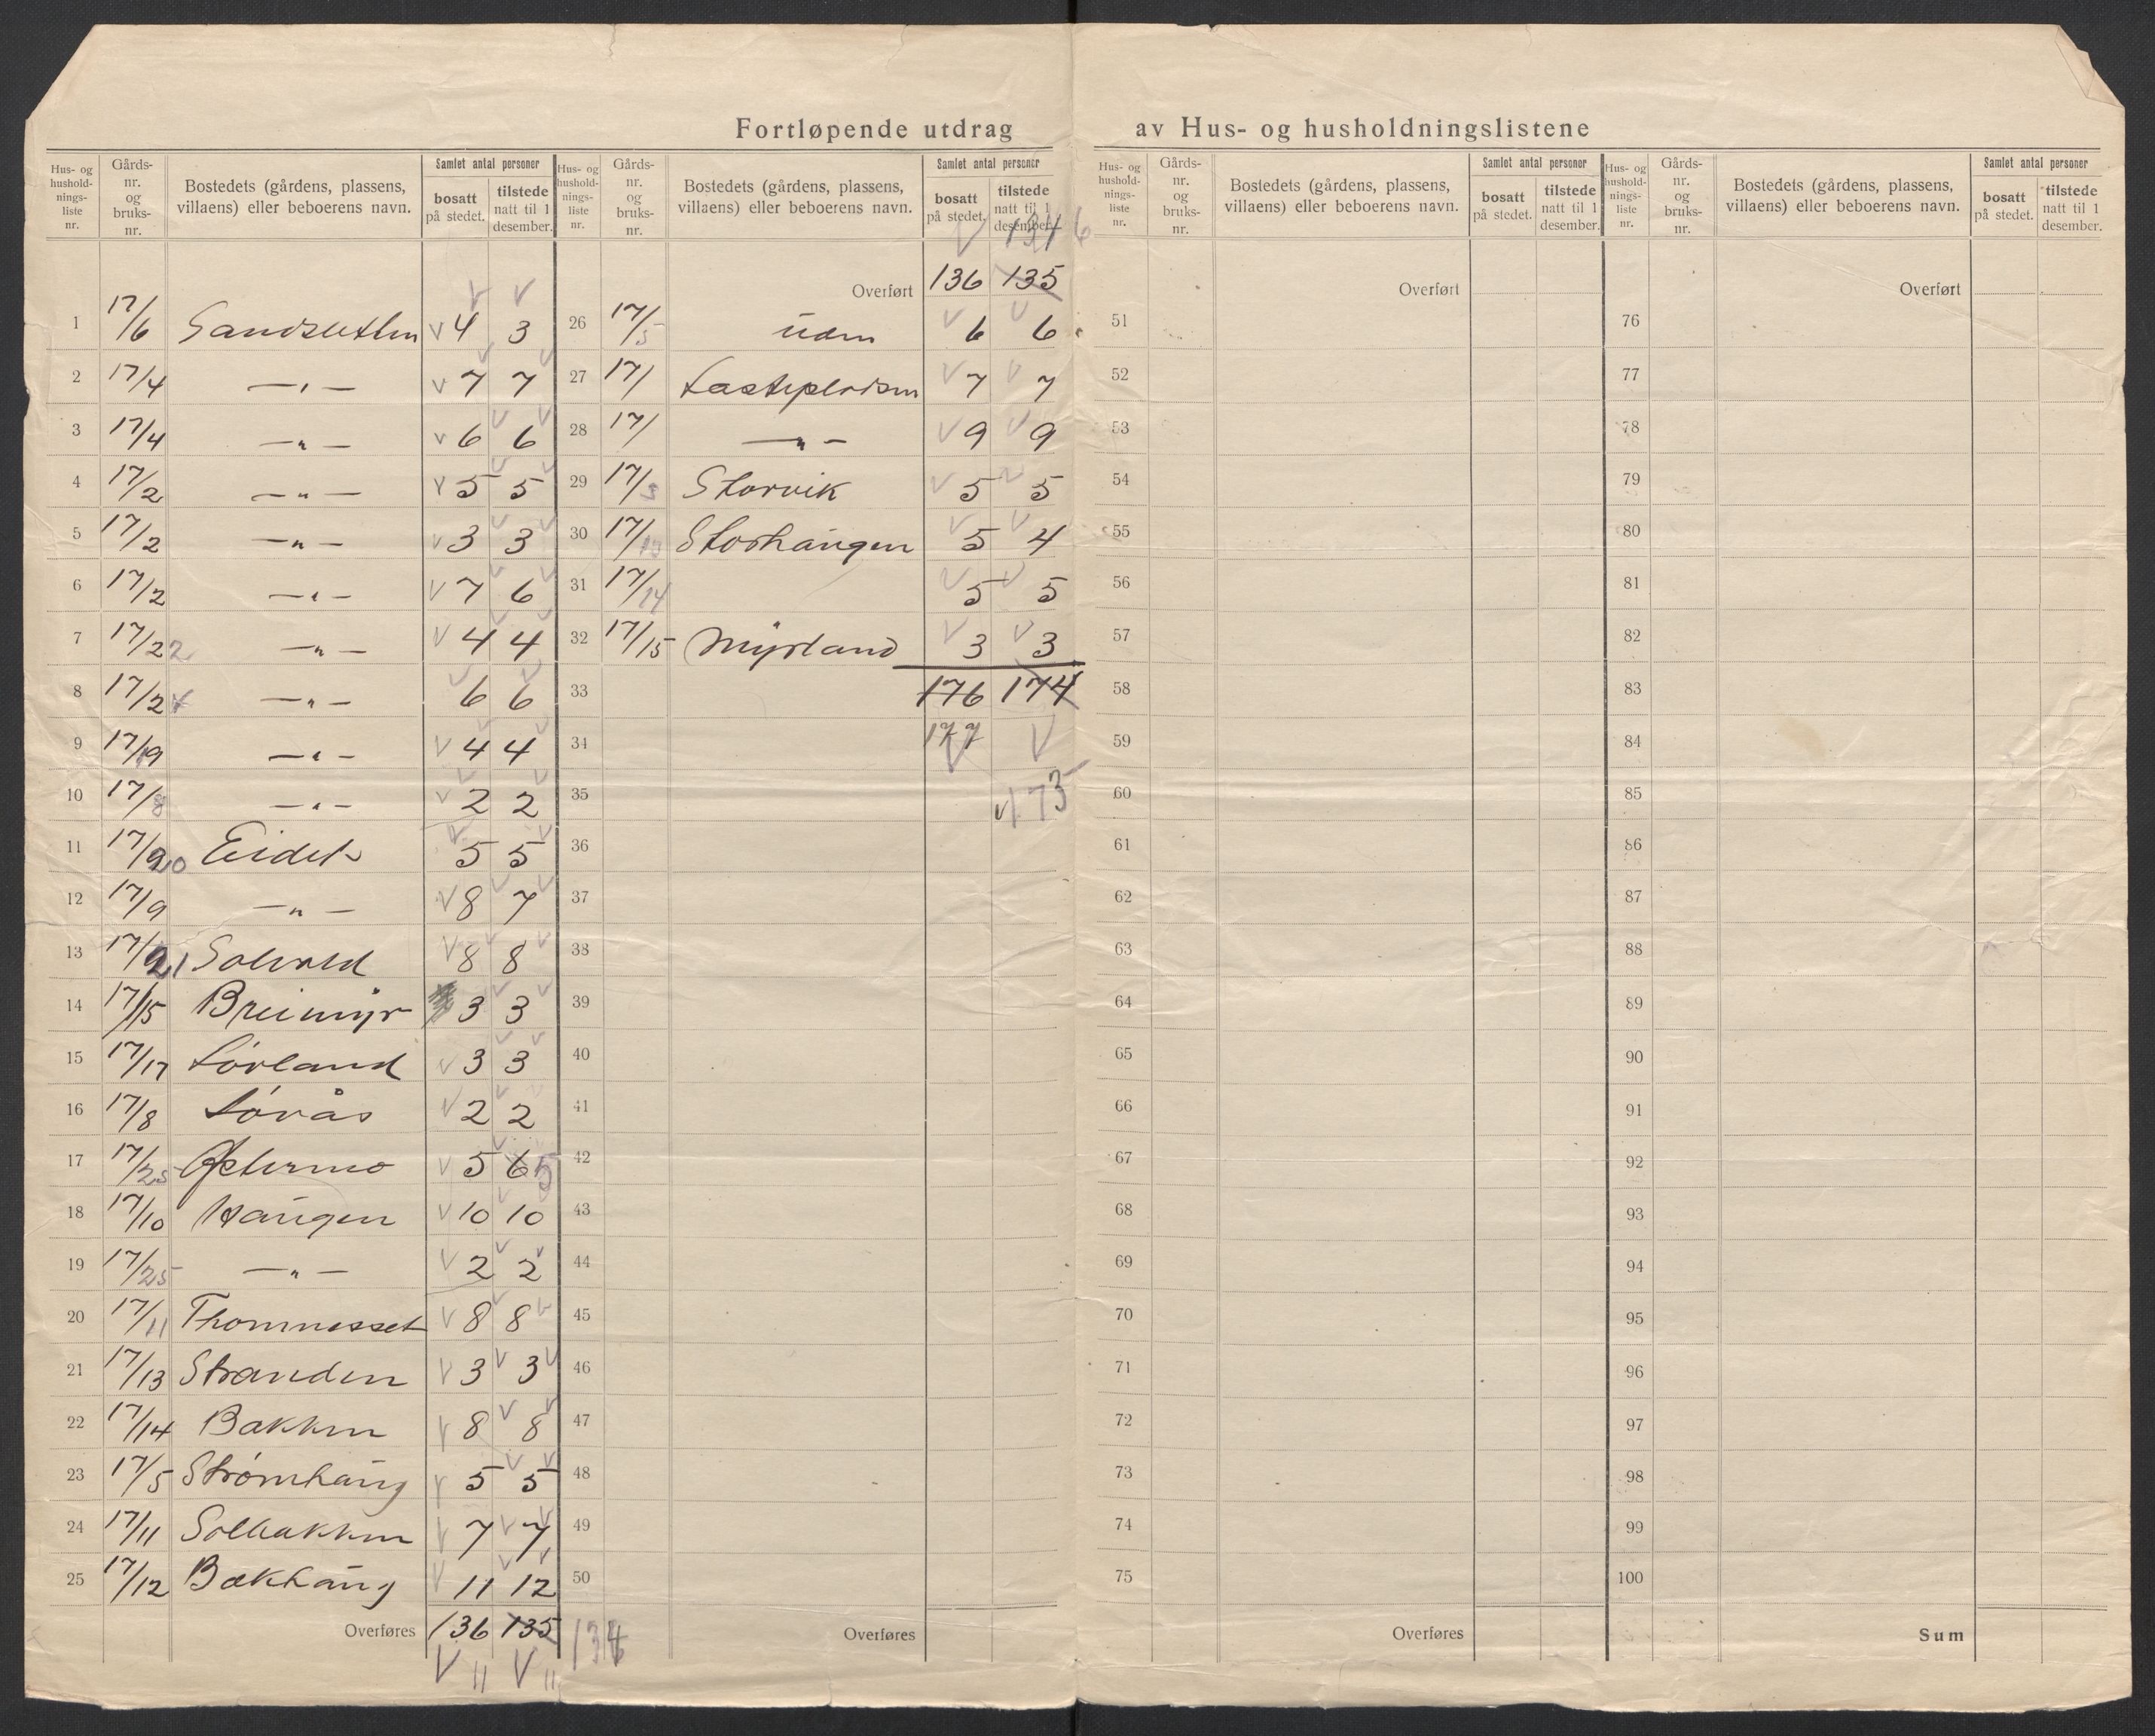 Fortløpende utdrag av Hus- og husholdningslistene
Hus- og husholdnings-liste nr. | Gårds-nr. og bruks-nr. | Bostedets (gårdens, plassens, villaens) eller beboerens navn. | Samlet antal personer | bosatt på stedet. | tilstede natt til 1 desember.
1 17/6 Sandsletten 4 3
2 17/4 —„— 7 7
3 17/4 —„— 6 6
4 17/2 —„— 5 5
5 17/2 —„— 3 3
6 17/2 —„— 7 6
7 17/22 —„— 4 4
8 17/24 —„— 6 6
9 17/19 —„— 4 4
10 17/8 —„— 2 2
11 17/20 Eidet 5 5
12 17/9 —„— 8 7
13 17/21 Solvold 8 8
14 17/15 Breimyr 3 3
15 17/17 Sørland 3 3
16 17/8 Søvås 2 2
17 17/25 5 6 5
18 17/10 Haugen 10 10
19 17/25 —„— 2 2
20 17/11 Thomnesset 8 8
21 17/13 Stranden 3 3
22 17/14 Bakken 8 8
23 17/5 Strømhaug 5 5
24 17/11 Solbakken 7 7
25 17/12 Bakhaug 11 12
Overføres 136 135 134
Hus- og husholdnings-liste nr. | Gårds-nr. og bruks-nr. | Bostedets (gårdens, plassens, villaens) eller beboerens navn. | Samlet antal personer | bosatt på stedet. | tilstede natt til 1 desember.
134 6
Overført 136 135
26 17/5 uden 6 6
27 17/ 7 7
28 17/ —„— 9 9
29 17/3 Storvik 5 5
30 17/13 Storhaugen 5 4
31 17/14 5 5
32 17/15 Myrland 3 3
33 176 174
34 177
35 173
36
37
38
39
40
41
42
43
44
45
46
47
48
49
50
Overføres
Hus- og husholdnings-liste nr. | Gårds-nr. og bruks-nr. | Bostedets (gårdens, plassens, villaens) eller beboerens navn. | Samlet antal personer | bosatt på stedet. | tilstede natt til 1 desember.
Overført
51
52
53
54
55
56
57
58
59
60
61
62
63
64
65
66
67
68
69
70
71
72
73
74
75
Overføres
Hus- og husholdnings-liste nr. | Gårds-nr. og bruks-nr. | Bostedets (gårdens, plassens, villaens) eller beboerens navn. | Samlet antal personer | bosatt på stedet. | tilstede natt til 1 desember.
Overført
76
77
78
79
80
81
82
83
84
85
86
87
88
89
90
91
92
93
94
95
96
97
98
99
100
Sum